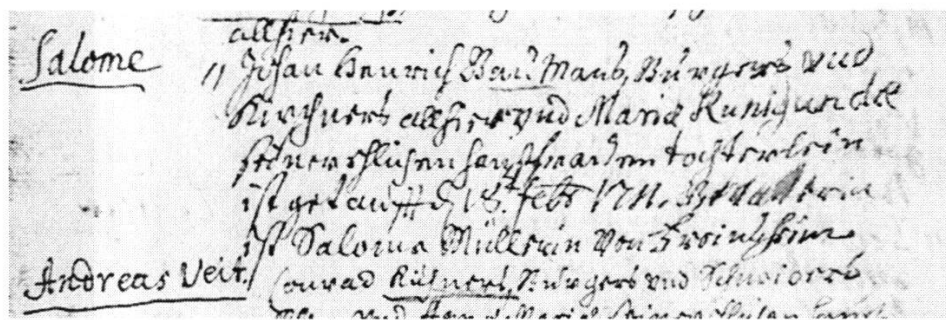 allhier.
Salome
Johan Henrich Bau Mans, Bürgers und
Kirchners allhier und Maria Kunigundæ
seiner ehlichen haußfrauen tochterlein
ist getaufft d 18t febr 1711. Gevatterin
ist Salome Müllerin von Freinßheim
Andreas Veit.
Conrad Küchners, Bürgers und Schneiders
und Anna Maria seiner ehlichen